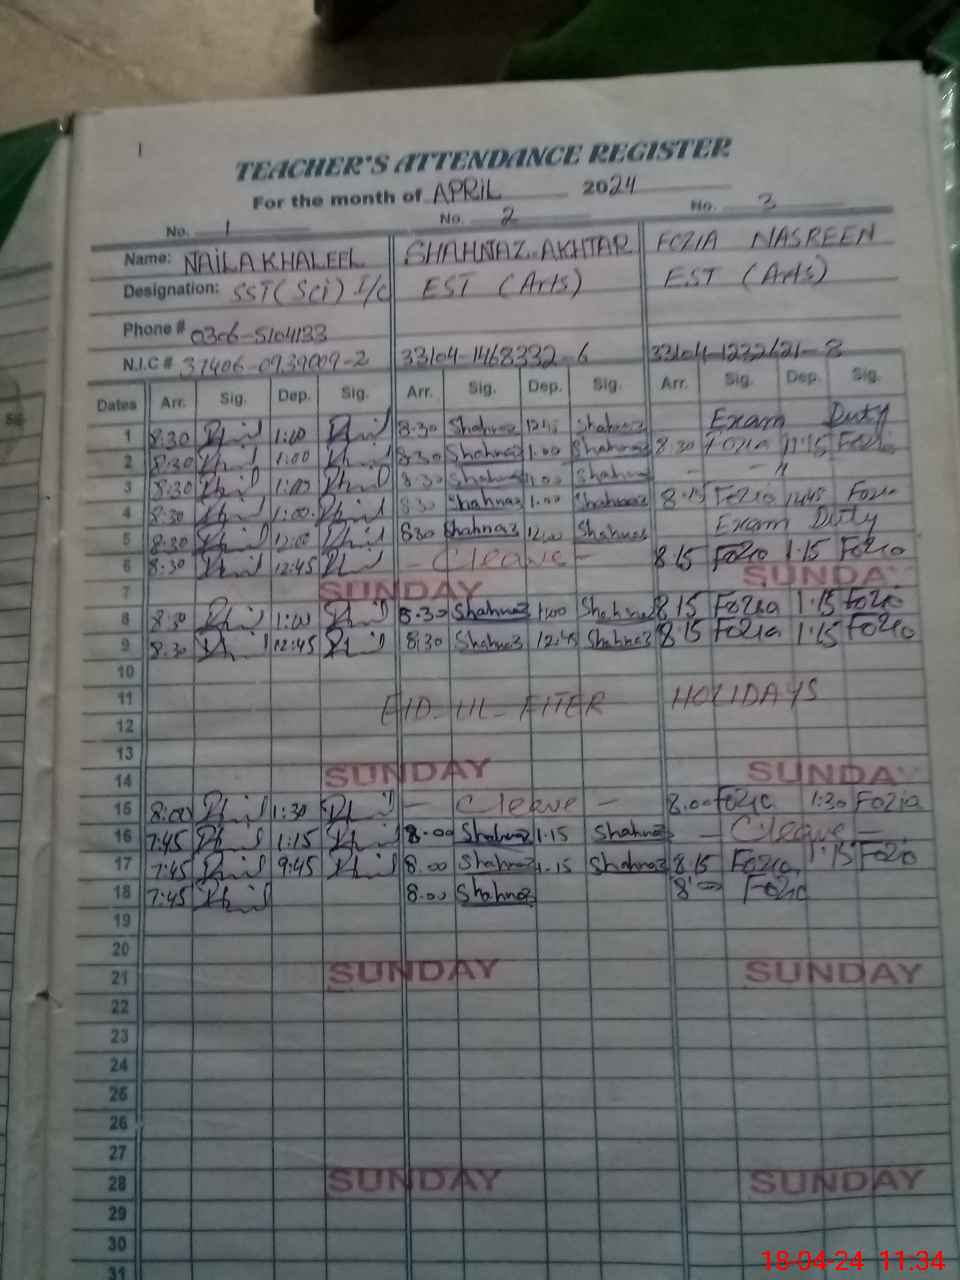 1
TEACHER'S ATTENDANCE REGISTER
For the month of APRIL 2024
No. 1 No. 2 No. 3
Name: NAILA KHALEEL SHAHNAZ AKHTAR FOZIA NASREEN
Designation: SST (Sci) I/c EST (Arts) EST (Arts)
Phone # 0306-5104133
N.I.C # 37406-0939009-2 33104-1468332-6 33104-1232621-8
Dates Arr. Sig. Dep. Sig. Arr. Sig. Dep. Sig. Arr. Sig. Dep. Sig.
1 8:30 1:00 8:30 Shahnaz 12:45 Shahnaz Exam Duty
2 8:30 1:00 8:30 Shahnaz 1.00 Shahnaz 8.30 Fozia 11:15 Fozia
3 8:30 1:00 8:30 Shahnaz 1.00 Shahnaz - - "
4 8:30 1:00 8:30 Shahnaz 1.00 Shahnaz 8.15 Fozia 12:45 Fozia
5 8:30 12:00 830 Shahnaz 12:00 Shahnaz Exam Duty
6 8:30 12:45 - Cleave - 8:15 Fozia 1.15 Fozia
7 SUNDAY SUNDA
8 8:30 1:00 8.30 Shahnaz 1:00 Shahnaz 8:15 Fozia 1:15 Fozia
9 8.30 12:45 8:30 Shahnaz 12:45 Shahnaz 8:15 Fozia 1:15 Fozia
10
11 EID-UL-FITER HOLIDAYS
12
13
14 SUNDAY SUNDA
15 8:00 1:30 - Cleave - 8.00 Fozia 1:30 Fozia
16 7:45 1:15 8.00 Shahnaz 1.15 Shahnaz - Cleave -
17 7:45 9:45 8.00 Shahnaz 1.15 Shahnaz 8:15 Fozia 1:15 Fozia
18 7:45 8.00 Shahnaz 8:00 Fozia
19
20
21 SUNDAY SUNDAY
22
23
24
25
26
27
28 SUNDAY SUNDAY
29
30
31
18-04-24 11:34